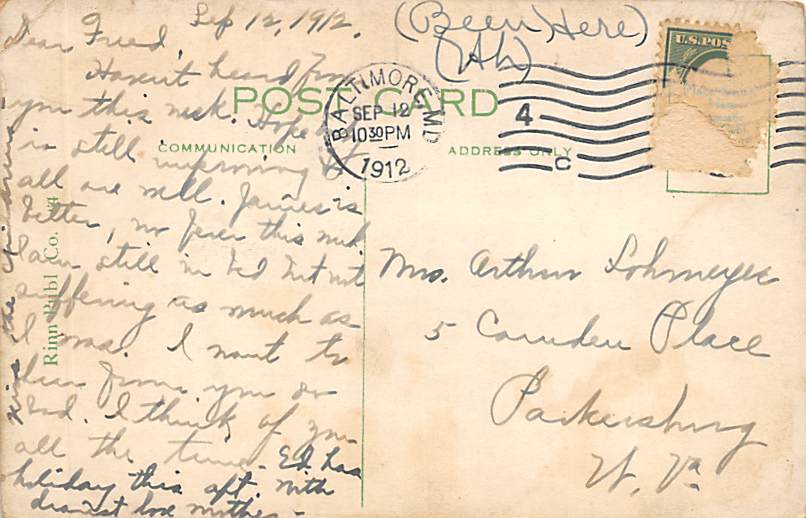 Sep 12, 1912.
(Been Here)
(Ah)
U.S.POS
POST CARD
COMMUNICATION
ADDRESS ONLY
BALTIMORE, MD
SEP 12
10 30 PM
1912
4
C
Dear Freed,
Haven't heard from
you this week. Hope
is still improving
all are well. James is
better, no fever this week.
I am still in bed but not
suffering as much as
I was. I want to
hear from you or
Ed. I think of you
all the time. Ed has
holiday this aft. With
dearest love mother-
Kiss the
Rinn Publ. Co.
Mrs. Arthur Lohmeyer
5 Camden Place
Parkersburg
W. Va